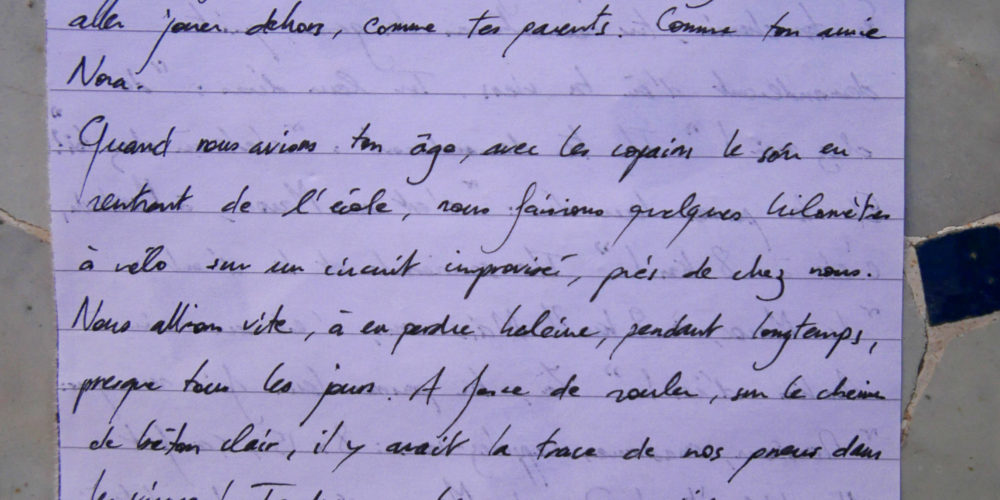 aller jouer dehors, comme tes parents. Comme ton amie
Nora.
Quand nous avions ton âge, avec les copains le soir en
rentrant de l'école, nous faisions quelques kilomètres
à vélo sur un circuit improvisé, près de chez nous.
Nous allions vite, à en perdre haleine, pendant longtemps,
presque tous les jours. A force de rouler, sur le chemin
de béton clair, il y avait la trace de nos pneus dans
les virages !